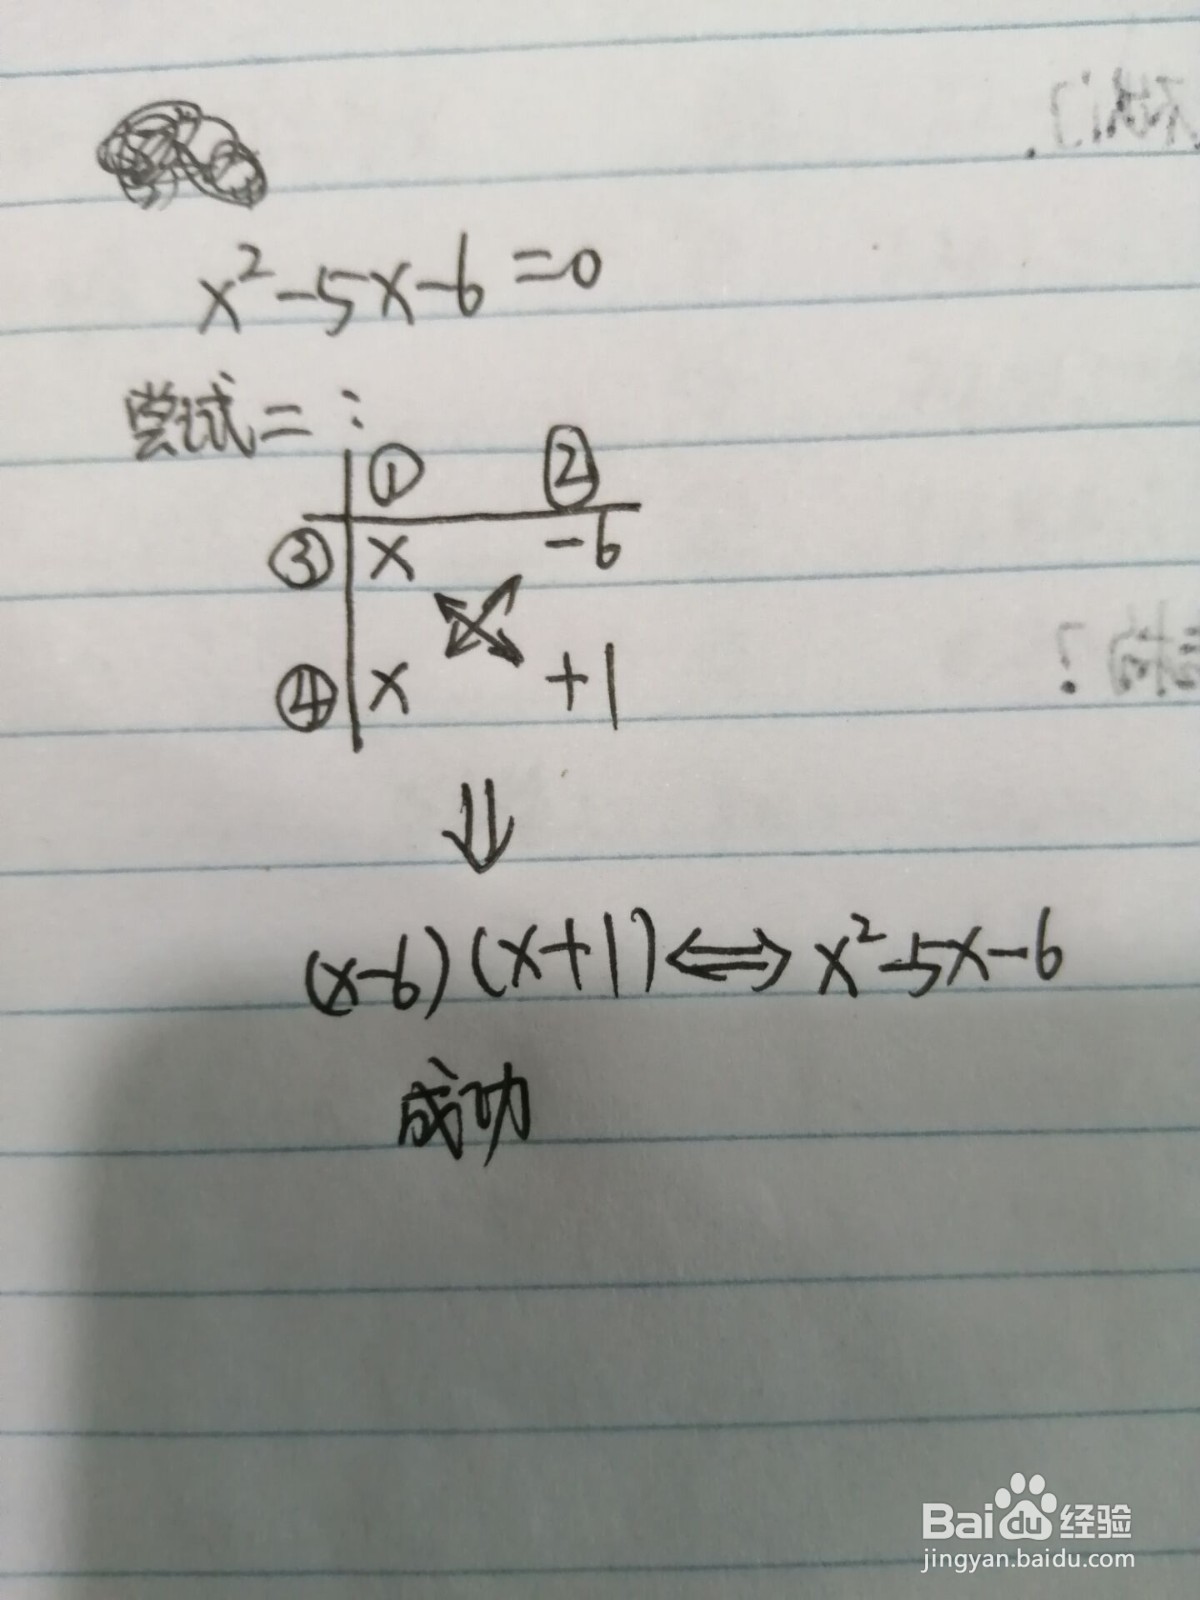 x²-5x-6=0
尝试二:
① ②
③ x -6
④ x +1
⇓
(x-6)(x+1)⟺x²-5x-6
成功
Baidu经验
jingyan.baidu.com